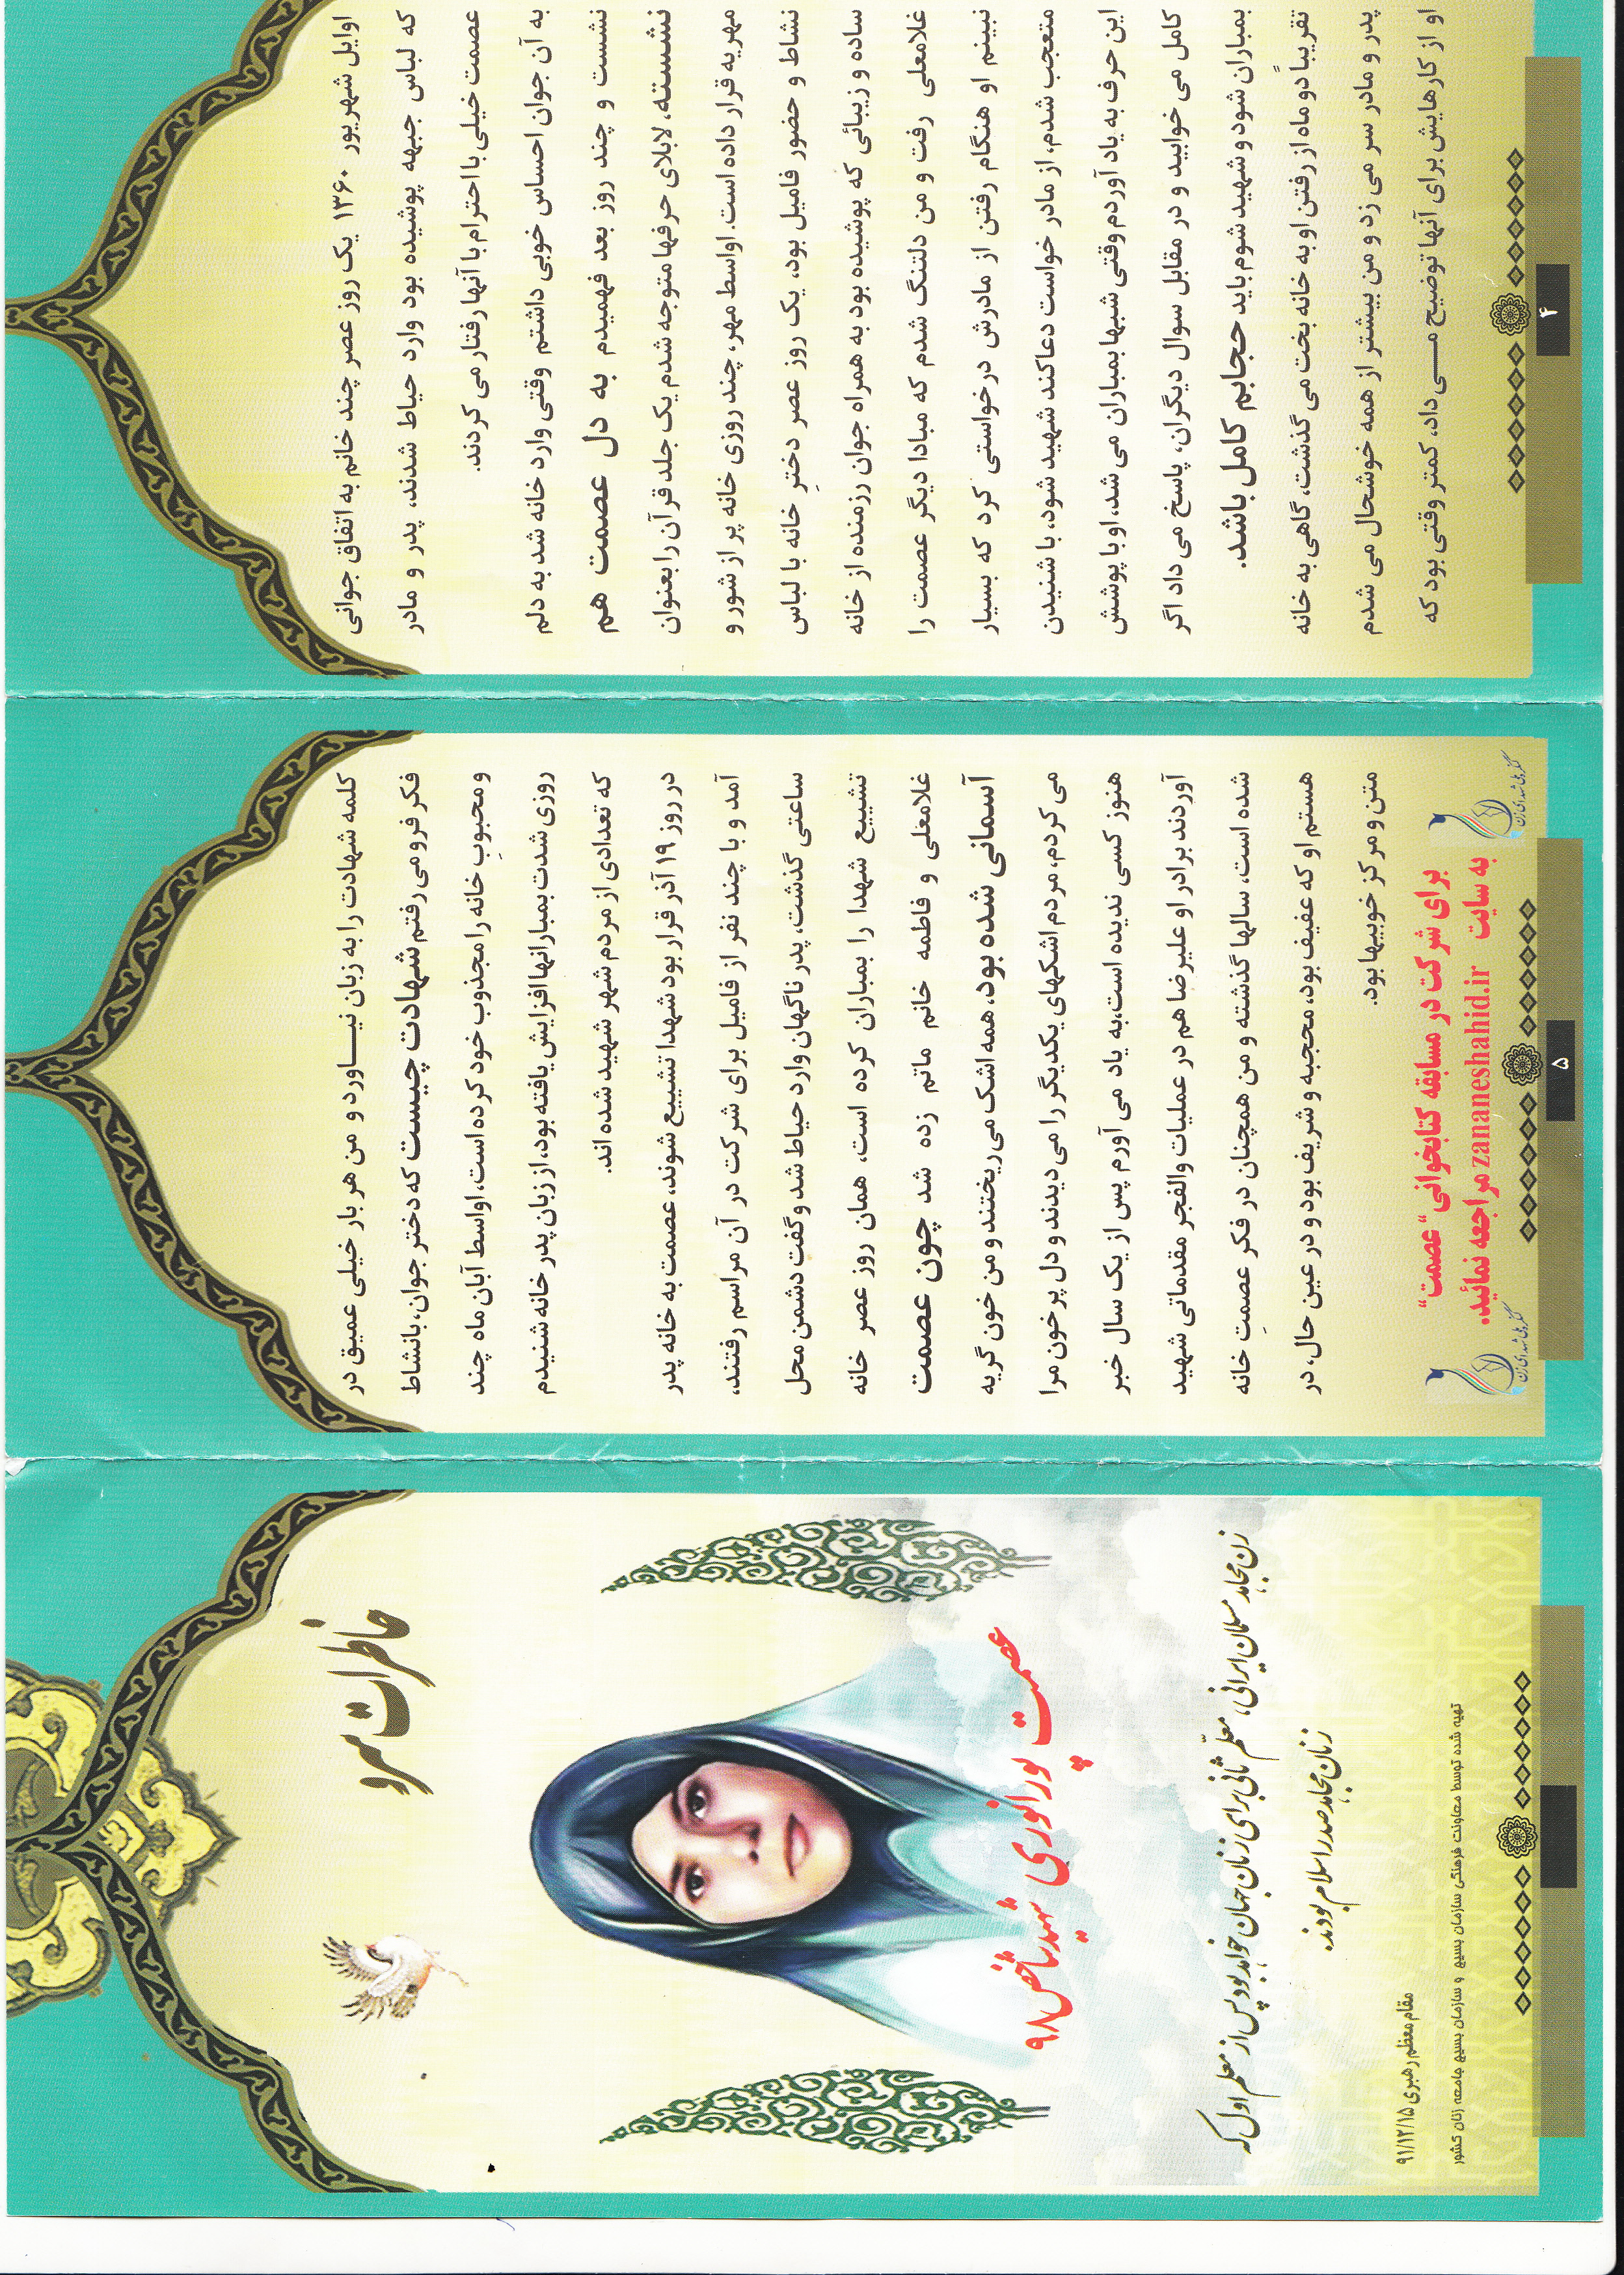 اوایل شهریور ۱۳۶۰ یک روز عصر چند خانم به اتفاق جوانی
که لباس جبهه پوشیده بود وارد حیاط شدند، پدر و مادر
عصمت خیلی با احترام با آنها رفتار می کردند.
به آن جوان احساس خوبی داشتم وقتی وارد خانه شد به دلم
نشست و چند روز بعد فهمیدم به دل عصمت هم
نشسته، لابلای حرفها متوجه شدم یک جلد قرآن را بعنوان
مهریه قرار داده است. اواسط مهر، چند روزی خانه پر از شور و
نشاط و حضور فامیل بود، یک روز عصر دخترِ خانه با لباس
ساده و زیبائی که پوشیده بود به همراه جوان رزمنده از خانه
غلامعلی رفت و من دلتنگ شدم که مبادا دیگر عصمت را
نبینم او هنگام رفتن از مادرش درخواستی کرد که بسیار
متعجب شدم، از مادر خواست دعا کند شهید شود، با شنیدن
این حرف به یاد آوردم وقتی شبها بمباران می شد، او با پوشش
کامل می خوابید و در مقابل سوال دیگران، پاسخ می داد اگر
بمباران شود و شهید شوم باید حجابم کامل باشد.
تقریباً دو ماه از رفتن او به خانه بخت می گذشت، گاهی به خانه
پدر و مادر سر می زد و من بیشتر از همه خوشحال می شدم
او از کارهایش برای آنها توضیح مــی داد، کمتر وقتی بود که
۴
کلمه شهادت را به زبان نیــاورد و من هر بار خیلی عمیق در
فکر فرو می رفتم شهادت چیست که دختر جوان، بانشاط
ومحبوبِ خانه را مجذوب خود کرده است، اواسط آبان ماه چند
روزی شدت بمبارانها افزایش یافته بود، از زبان پدر خانه شنیدم
که تعدادی از مردم شهر شهید شده اند.
در روز ۱۹ آذر قرار بود شهدا تشییع شوند، عصمت به خانه پدر
آمد و با چند نفر از فامیل برای شرکت در آن مراسم رفتند،
ساعتی گذشت، پدر ناگهان وارد حیاط شد وگفت دشمن محل
تشییع شهدا را بمباران کرده است، همان روز عصر خانه
غلامعلی و فاطمه خانم ماتم زده شد چون عصمت
آسمانی شده بود، همه اشک می ریختند و من خون گریه
می کردم، مردم اشکهای یکدیگر را می دیدند و دل پر خون مرا
هنوز کسی ندیده است،به یاد می آورم پس از یک سال خبر
آوردند برادر او علیرضا هم در عملیات والفجر مقدماتی شهید
شده است، سالها گذشته و من همچنان در فکر عصمتِ خانه
هستم او که عفیف بود، محجبه و شریف بود و در عین حال، در
متن و مرکز خوبیها بود.
برای شرکت در مسابقه کتابخوانی "عصمت"
به سایت zananeshahid.ir مراجعه نمائید.
کنگره ملی شهدای زن
کنگره ملی شهدای زن
۵
خاطرات سرو
عصمت پورانوری شهید شاخص ۹۸
زن مجاهد مسلمان ایرانی، معلّم ثانی برای زنان جهان خواهد بود پس از معلم اول که
زنان مجاهد صدر اسلام بودند.
مقام معظم رهبری ۹۱/۱۲/۱۵
تهیه شده توسط معاونت فرهنگی سازمان بسیج و سازمان بسیج جامعه زنان کشور